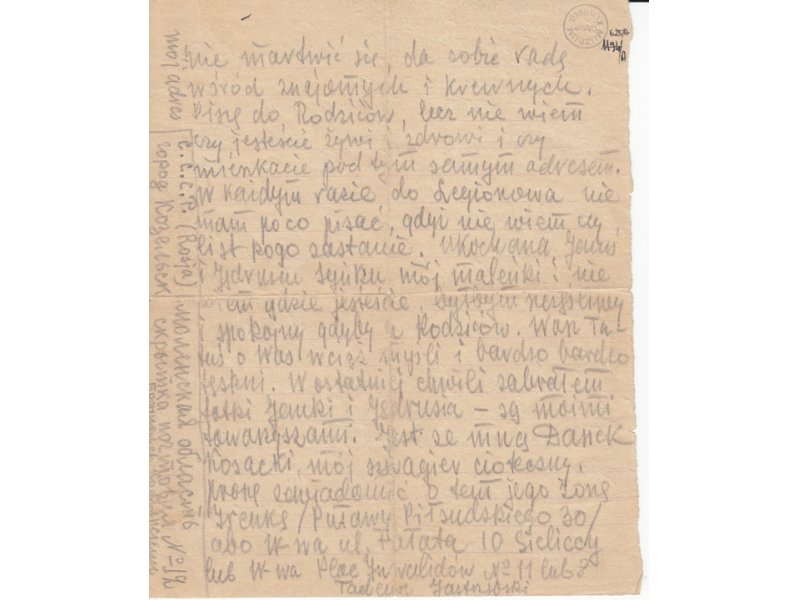 nie martwić się, da sobie radę
wśród znajomych i krewnych.
Piszę do Rodziców, lecz nie wiem
czy jesteście żywi i zdrowi i czy
mieszkacie pod tym samym adresem.
W każdym razie do Legionowa nie
mam poco pisać, gdyż nie wiem czy
list kogo zastanie. Ukochana Janko
i Jędrusiu synku mój maleńki, nie
wiem gdzie jesteście, byłbym szczęśliwy
i spokojny gdyby u Rodziców. Wasz Ta-
tuś o Was wciąż myśli i bardzo bardzo
tęskni. W ostatniej chwili zabrałem
fotki Janki i Jędrusia – są moimi
towarzyszami. Jest ze mną Danek
Kosacki, mój szwagier cioteczny.
Proszę zawiadomić o tem jego żonę
Irenkę /Puławy Piłsudskiego 30/
albo W-wa ul. Fałata 10 Sieliccy
lub W-wa Plac Inwalidów No 11 lub 8
Tadeusz
mój adres
С.С.С.Р. (Rosja) смоленская область
город Козельск
почтовый No 12
625/A
1194/A